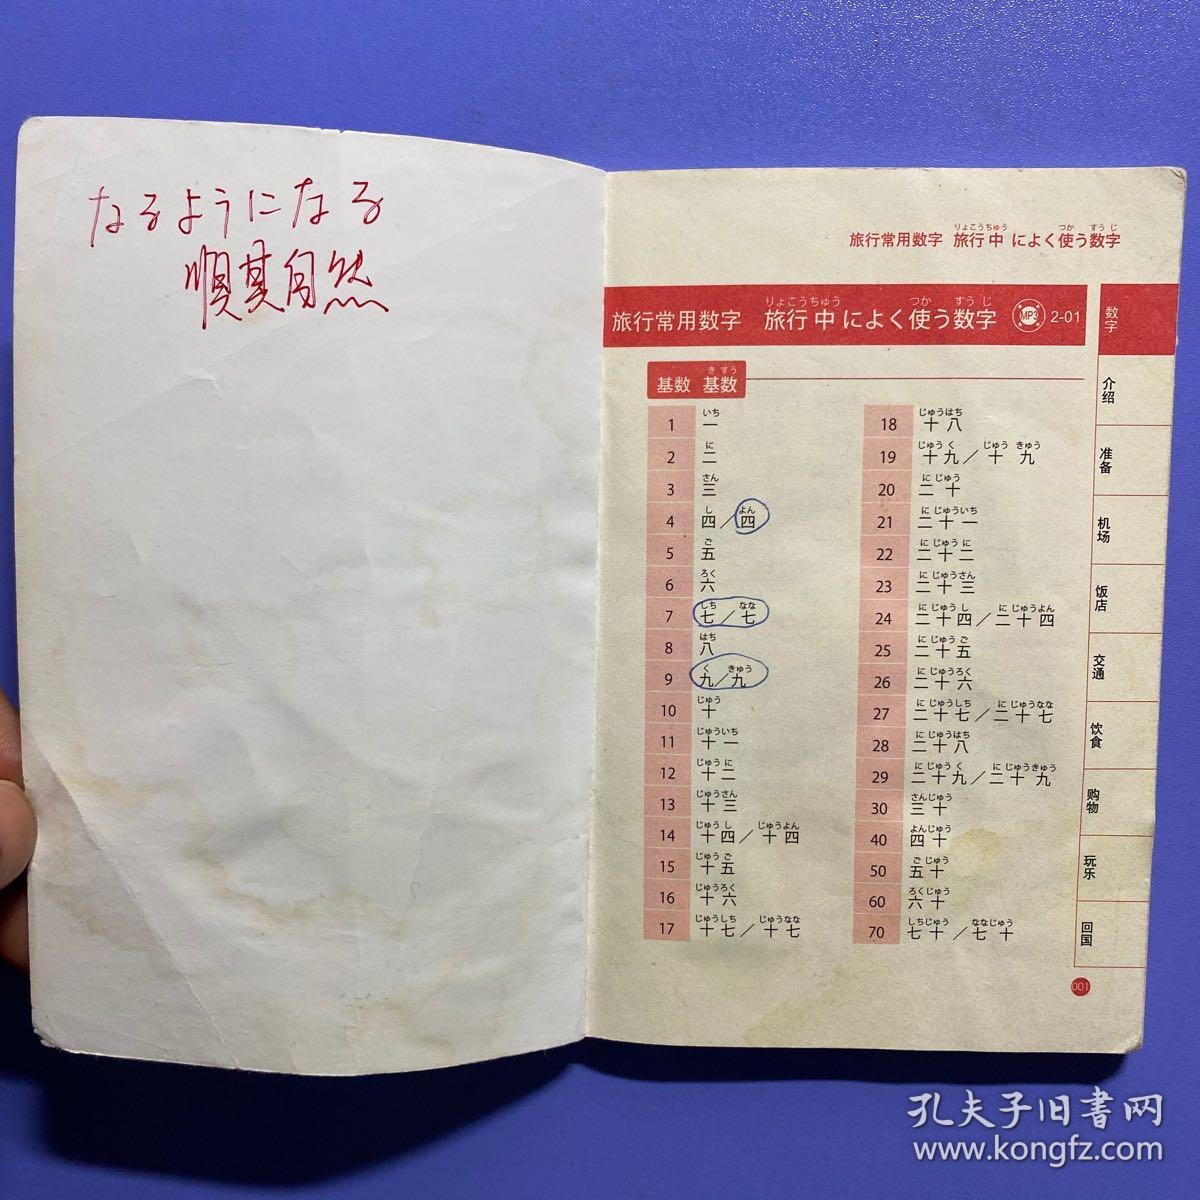 なるようになる
順其自然
旅行常用数字 旅行中によく使う数字
りょこうちゅう つか すうじ
旅行常用数字 旅行中によく使う数字 MP3 2-01
りょこうちゅう つか すうじ
基数 基数
きすう
1 一
いち
2 二
に
3 三
さん
4 四／四
し よん
5 五
ご
6 六
ろく
7 七／七
しち なな
8 八
はち
9 九／九
く きゅう
10 十
じゅう
11 十一
じゅういち
12 十二
じゅうに
13 十三
じゅうさん
14 十四／十四
じゅうし じゅうよん
15 十五
じゅうご
16 十六
じゅうろく
17 十七／十七
じゅうしち じゅうなな
18 十八
じゅうはち
19 十九／十九
じゅうく じゅうきゅう
20 二十
にじゅう
21 二十一
にじゅういち
22 二十二
にじゅうに
23 二十三
にじゅうさん
24 二十四／二十四
にじゅうし にじゅうよん
25 二十五
にじゅうご
26 二十六
にじゅうろく
27 二十七／二十七
にじゅうしち にじゅうなな
28 二十八
にじゅうはち
29 二十九／二十九
にじゅうく にじゅうきゅう
30 三十
さんじゅう
40 四十
よんじゅう
50 五十
ごじゅう
60 六十
ろくじゅう
70 七十／七十
しちじゅう ななじゅう
数字
介绍
准备
机场
饭店
交通
饮食
购物
玩乐
回国
001
孔夫子旧书网
www.kongfz.com